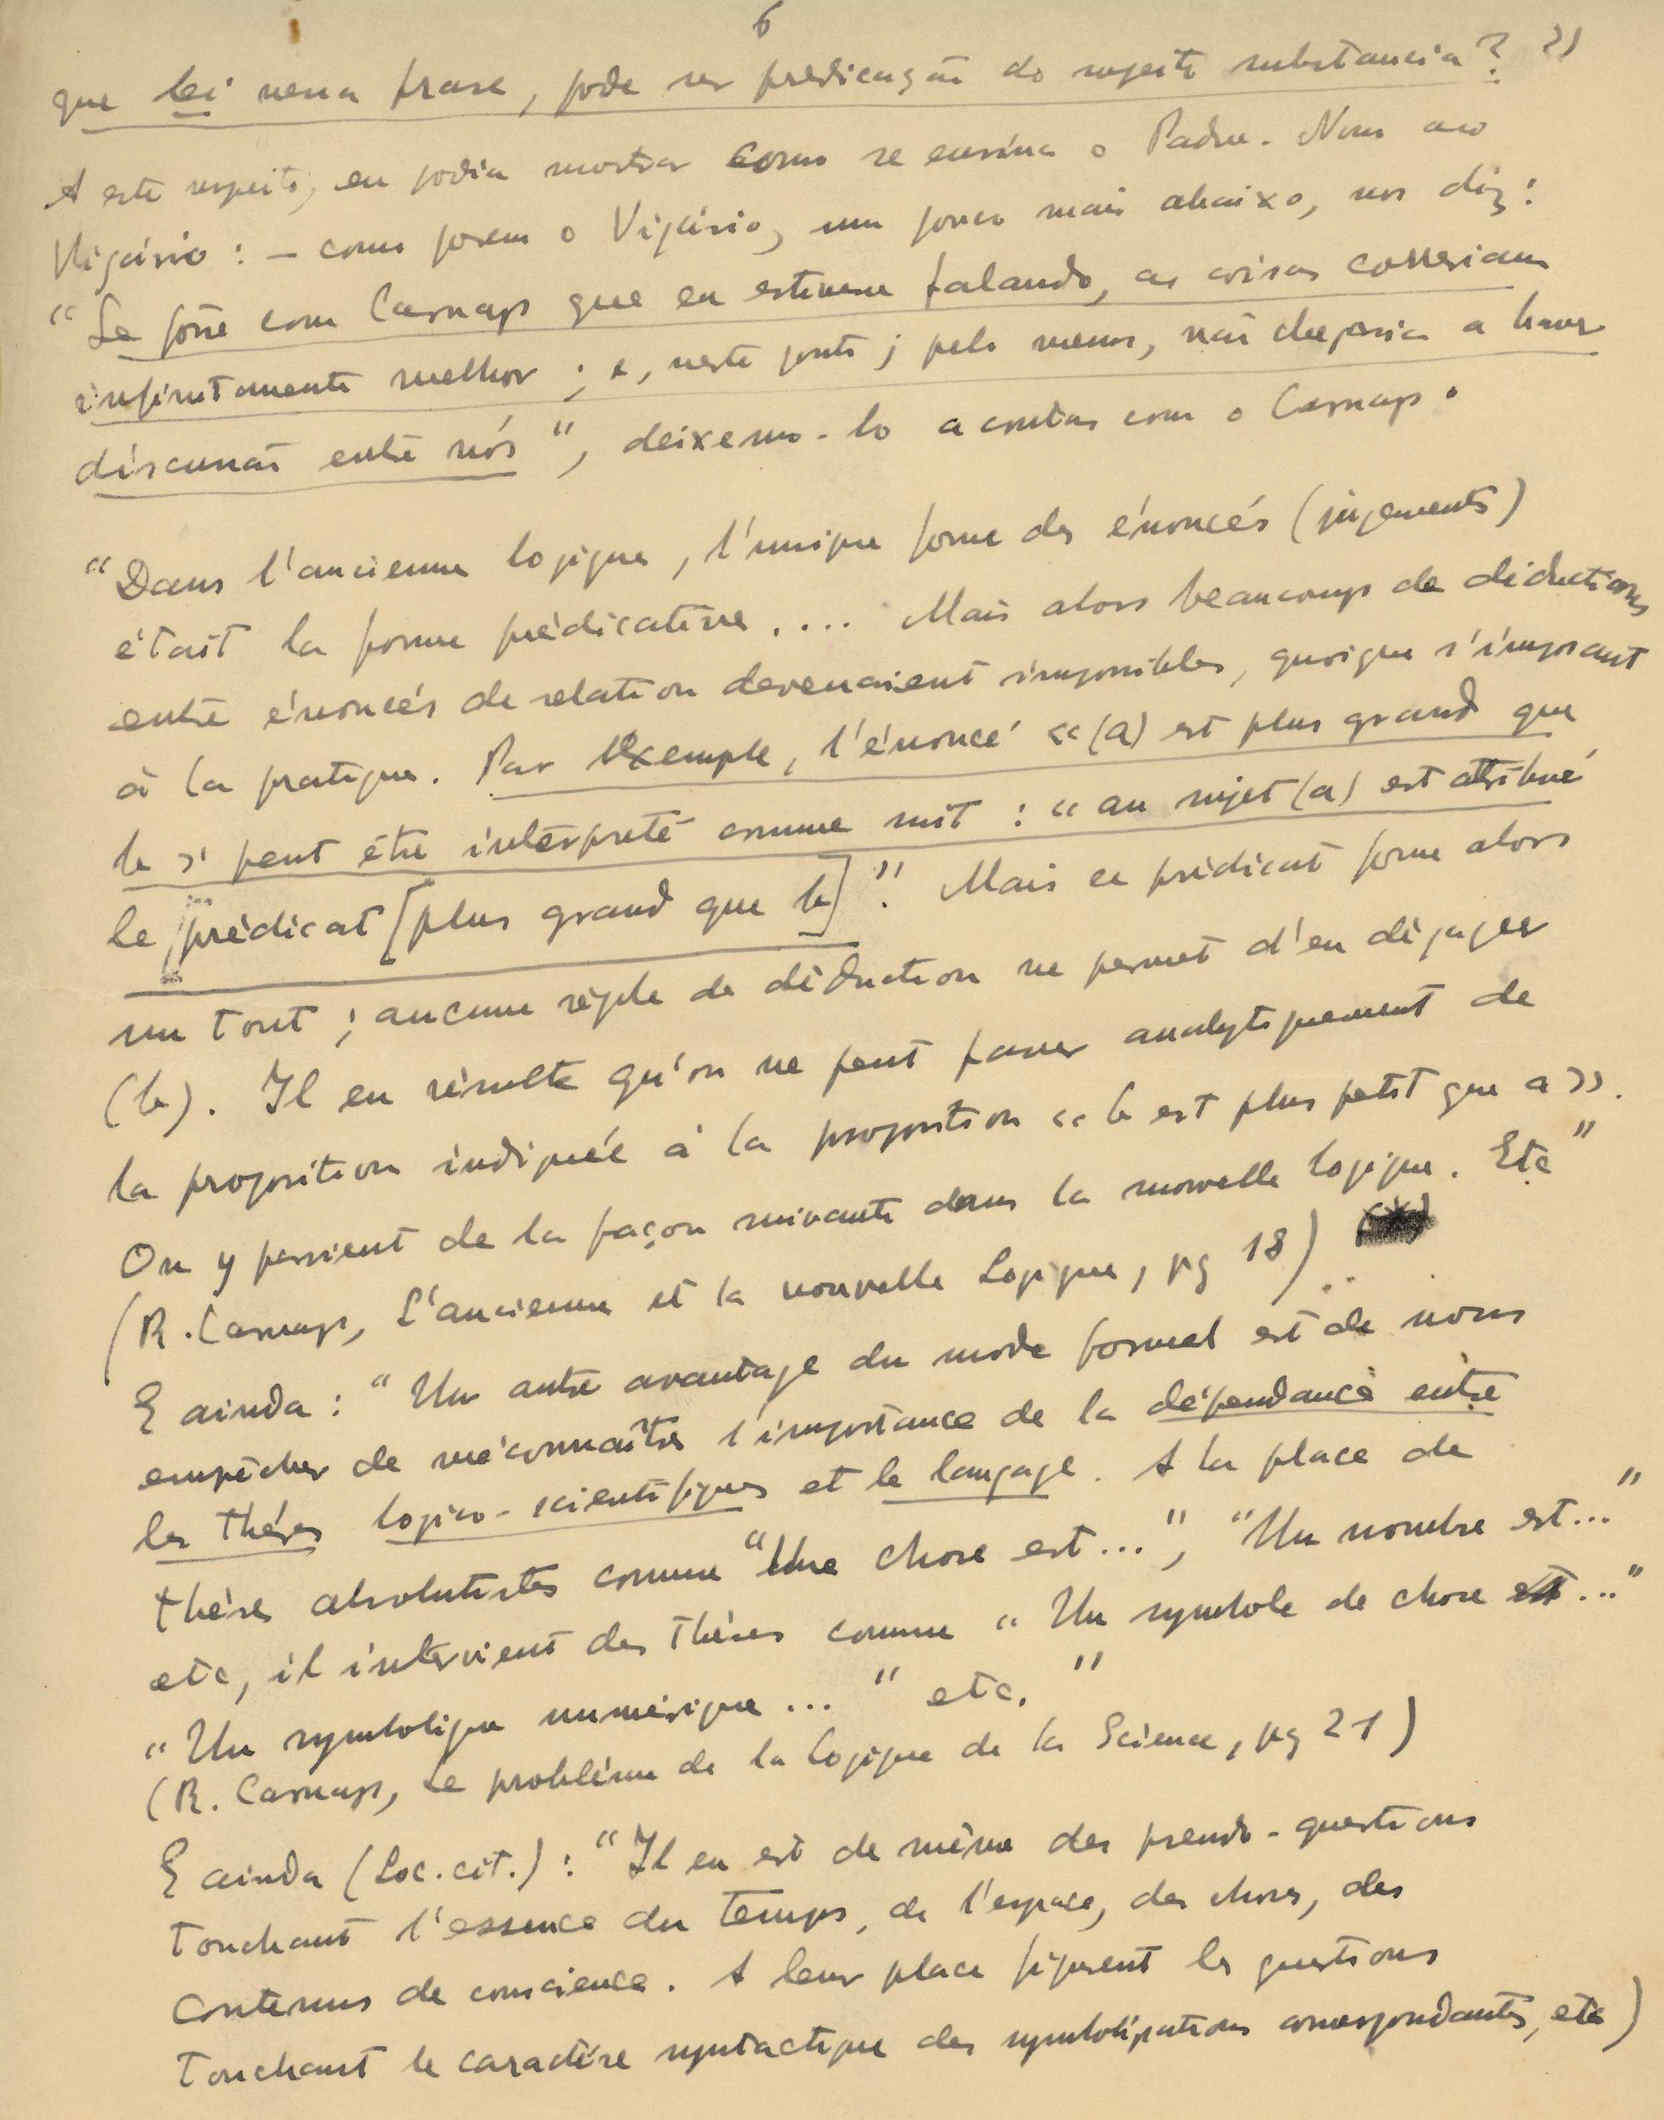 6
que lei nessa frase, pode ser predicação do sujeito substancia? »
A este respeito, eu podia mostrar como se ensina o Padre-Nosso ao
Vigário: – como porem o Vigário, um pouco mais abaixo, nos diz:
"Se fôsse com Carnap que eu estivesse falando, as coisas correriam
infinitamente melhor; e, neste ponto; pelo menos, não chegaria a haver
discussão entre nós", deixemo-lo a contas com o Carnap.
"Dans l'ancienne logique, l'unique forme des énoncés (jugements)
était la forme prédicative.... Mais alors beaucoup de déductions
entre énoncés de relation devenaient impossibles, quoique s'imposant
à la pratique. Par exemple, l'énoncé «(a) est plus grand que
b» peut être interprété comme suit: «au sujet (a) est attribué
le prédicat [plus grand que b]". Mais ce prédicat forme alors
un tout; aucune règle de déduction ne permet d'en dégager
(b). Il en résulte qu'on ne peut passer analytiquement de
la proposition indiquée à la proposition «b est plus petit que a».
On y parvient de la façon suivante dans la nouvelle logique. Etc"
(R. Carnap, L'ancienne et la nouvelle Logique, pg 18)
E ainda: "Un autre avantage du mode formel est de nous
empêcher de méconnaître l'importance de la dépendance entre
les thèses logico-scientifiques et le langage. A la place de
thèses absolutistes comme "Une chose est...", "Un nombre est..."
etc, il intervient des thèses comme "Un symbole de chose est..."
"Un symbolique numérique..." etc."
(R. Carnap, Le problème de la Logique de la Science, pg 21)
E ainda (Loc. cit.): "Il en est de même des pseudo-questions
touchant l'essence du temps, de l'espace, des choses, des
contenus de conscience. A leur place figurent les questions
touchant le caractère syntactique des symbolisations correspondantes, etc)